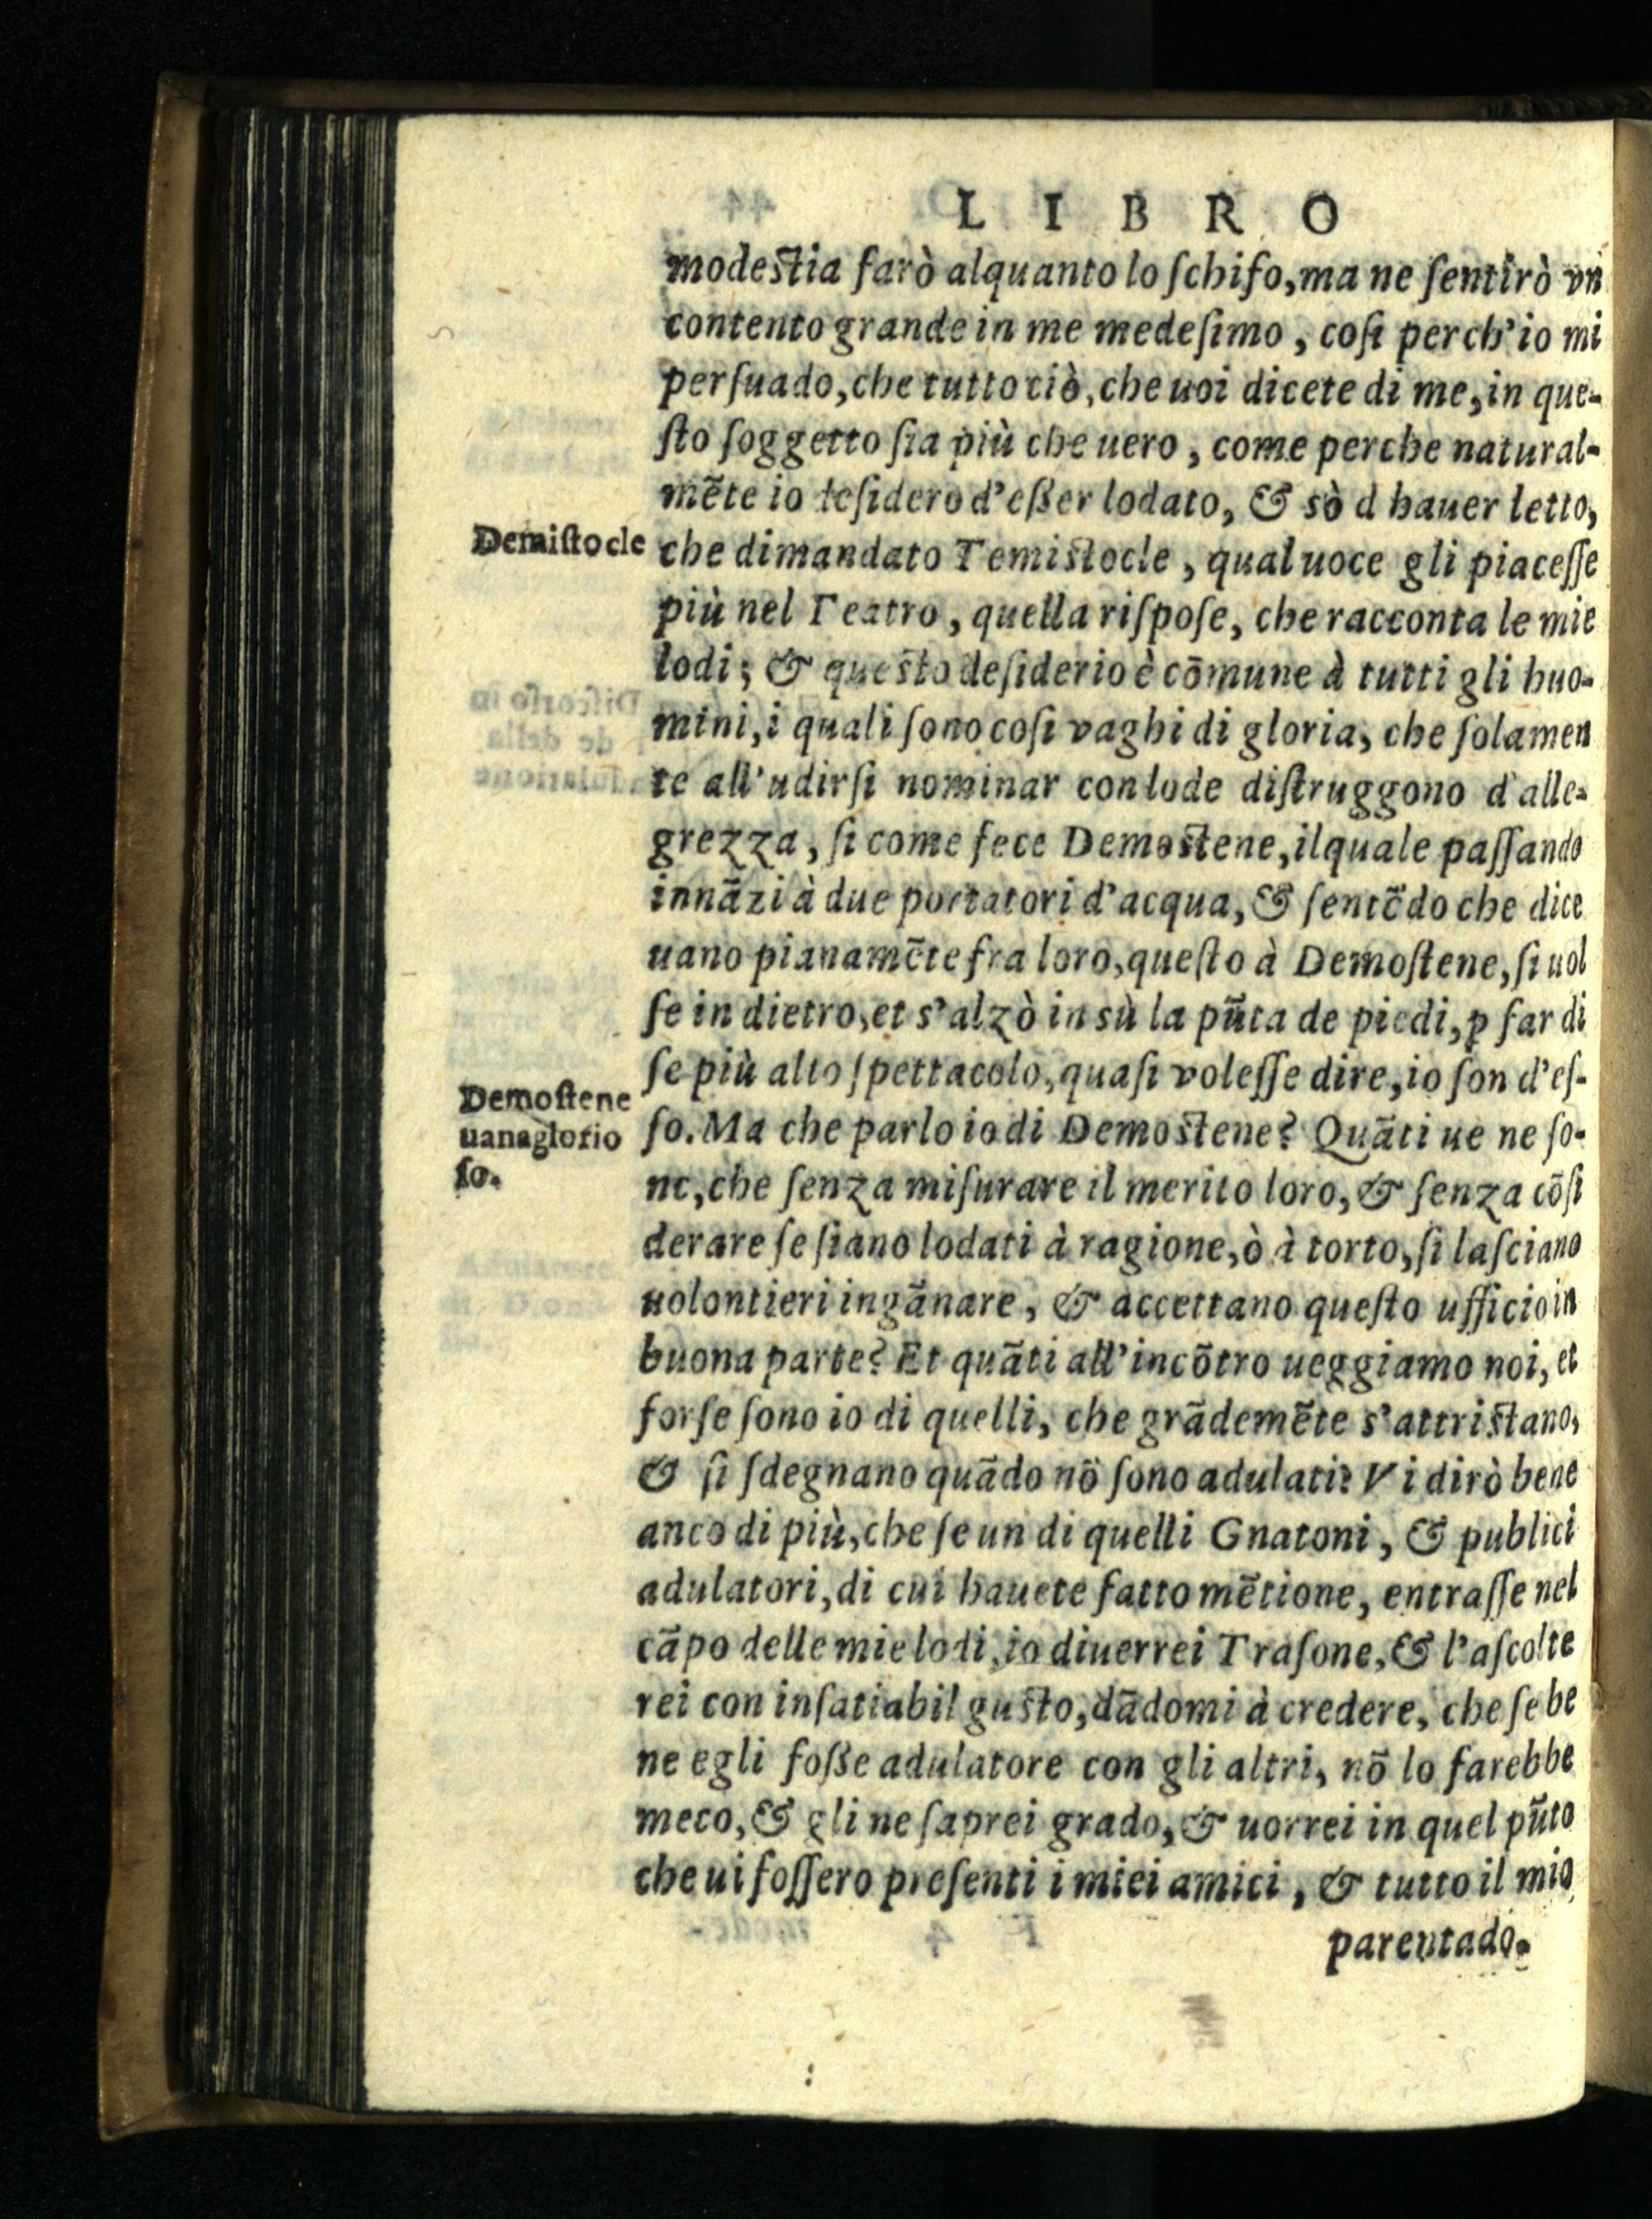 LIBRO
modestia farò alquanto lo ſchifo, ma ne ſentirò vn
contento grande in me medeſimo, coſi perch'io mi
perſuado, che tutto ciò, che uoi dicete di me, in que-
ſto ſoggetto ſia più che uero, come perche natural-
mēte io deſidero d'eßer lodato, & sò d hauer letto,
Demiſtocle
che dimandato Temistocle, qual uoce gli piaceſſe
più nel Teatro, quella riſpoſe, che racconta le mie
lodi; & questo deſiderio è cōmune à tutti gli huo-
mini, i quali ſono coſi vaghi di gloria, che ſolamen
te all'udirſi nominar con lode diſtruggono d'alle-
grezza, ſi come fece Demostene, ilquale paſſando
innāzi à due portatori d'acqua, & ſentēdo che dice
uano pianamēte fra loro, queſto à Demoſtene, ſi uol
ſe in dietro, et s'alzò in sù la pūta de piedi, ꝑ far di
ſe più alto ſpettacolo, quaſi voleſſe dire, io ſon d'eſ-
Demoſtene
uanaglorio
ſo.
ſo. Ma che parlo io di Demostene? Quāti ue ne ſo-
no, che ſenza miſurare il merito loro, & ſenza cōſi
derare ſe ſiano lodati à ragione, ò à torto, ſi laſciano
uolontieri ingānare, & accettano queſto ufficio in
buona parte? Et quāti all'incōtro ueggiamo noi, et
forſe ſono io di quelli, che grādemēte s'attristano,
& ſi ſdegnano quādo nō ſono adulati? Vi dirò bene
anco di più, che ſe un di quelli Gnatoni, & publici
adulatori, di cui hauete fatto mētione, entraſſe nel
cāpo delle mie lodi, io diuerrei Traſone, & l'aſcolte
rei con inſatiabil gusto, dādomi à credere, che ſe be
ne egli foße adulatore con gli altri, nō lo farebbe
meco, & gli ne ſaprei grado, & uorrei in quel pūto
che ui foſſero preſenti i miei amici, & tutto il mio
parentado.